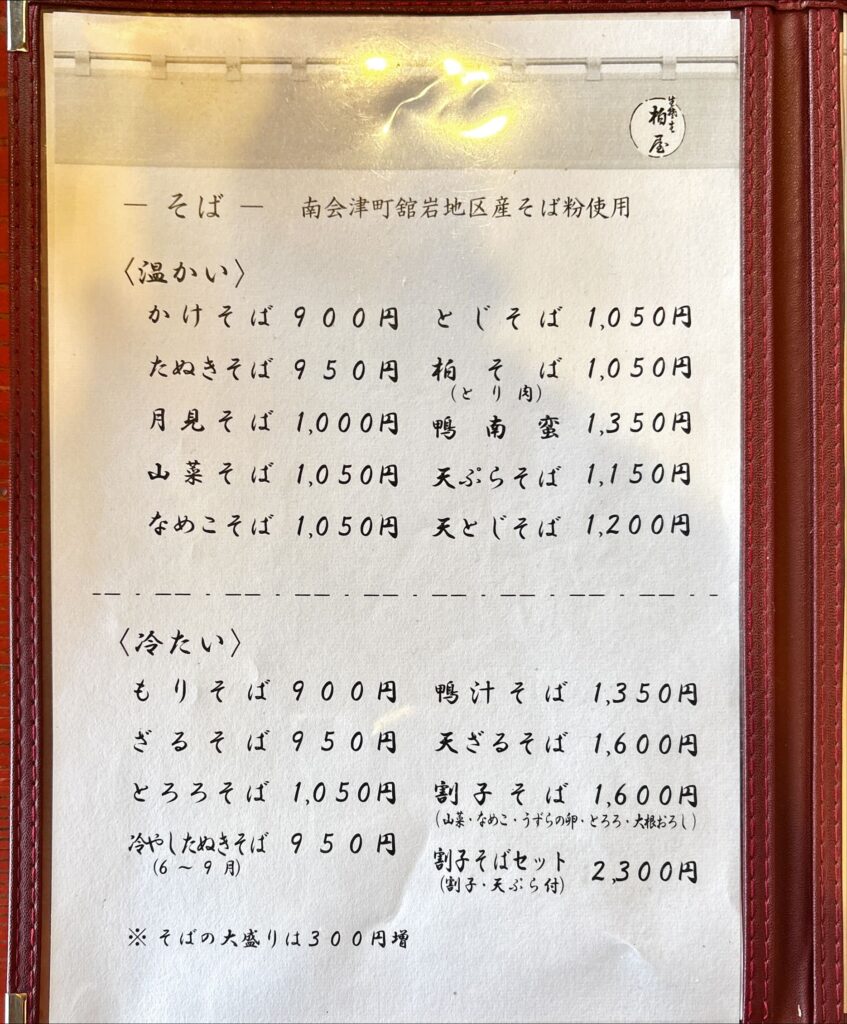 柏屋
― そば ― 南会津町舘岩地区産そば粉使用
〈温かい〉
かけそば 900円
たぬきそば 950円
月見そば 1,000円
山菜そば 1,050円
なめこそば 1,050円
とじそば 1,050円
柏そば 1,050円
(とり肉)
鴨南蛮 1,350円
天ぷらそば 1,150円
天とじそば 1,200円
〈冷たい〉
もりそば 900円
ざるそば 950円
とろろそば 1,050円
冷やしたぬきそば 950円
(6～9月)
鴨汁そば 1,350円
天ざるそば 1,600円
割子そば 1,600円
(山菜・なめこ・うずらの卵・とろろ・大根おろし)
割子そばセット 2,300円
(割子・天ぷら付)
※ そばの大盛りは300円増